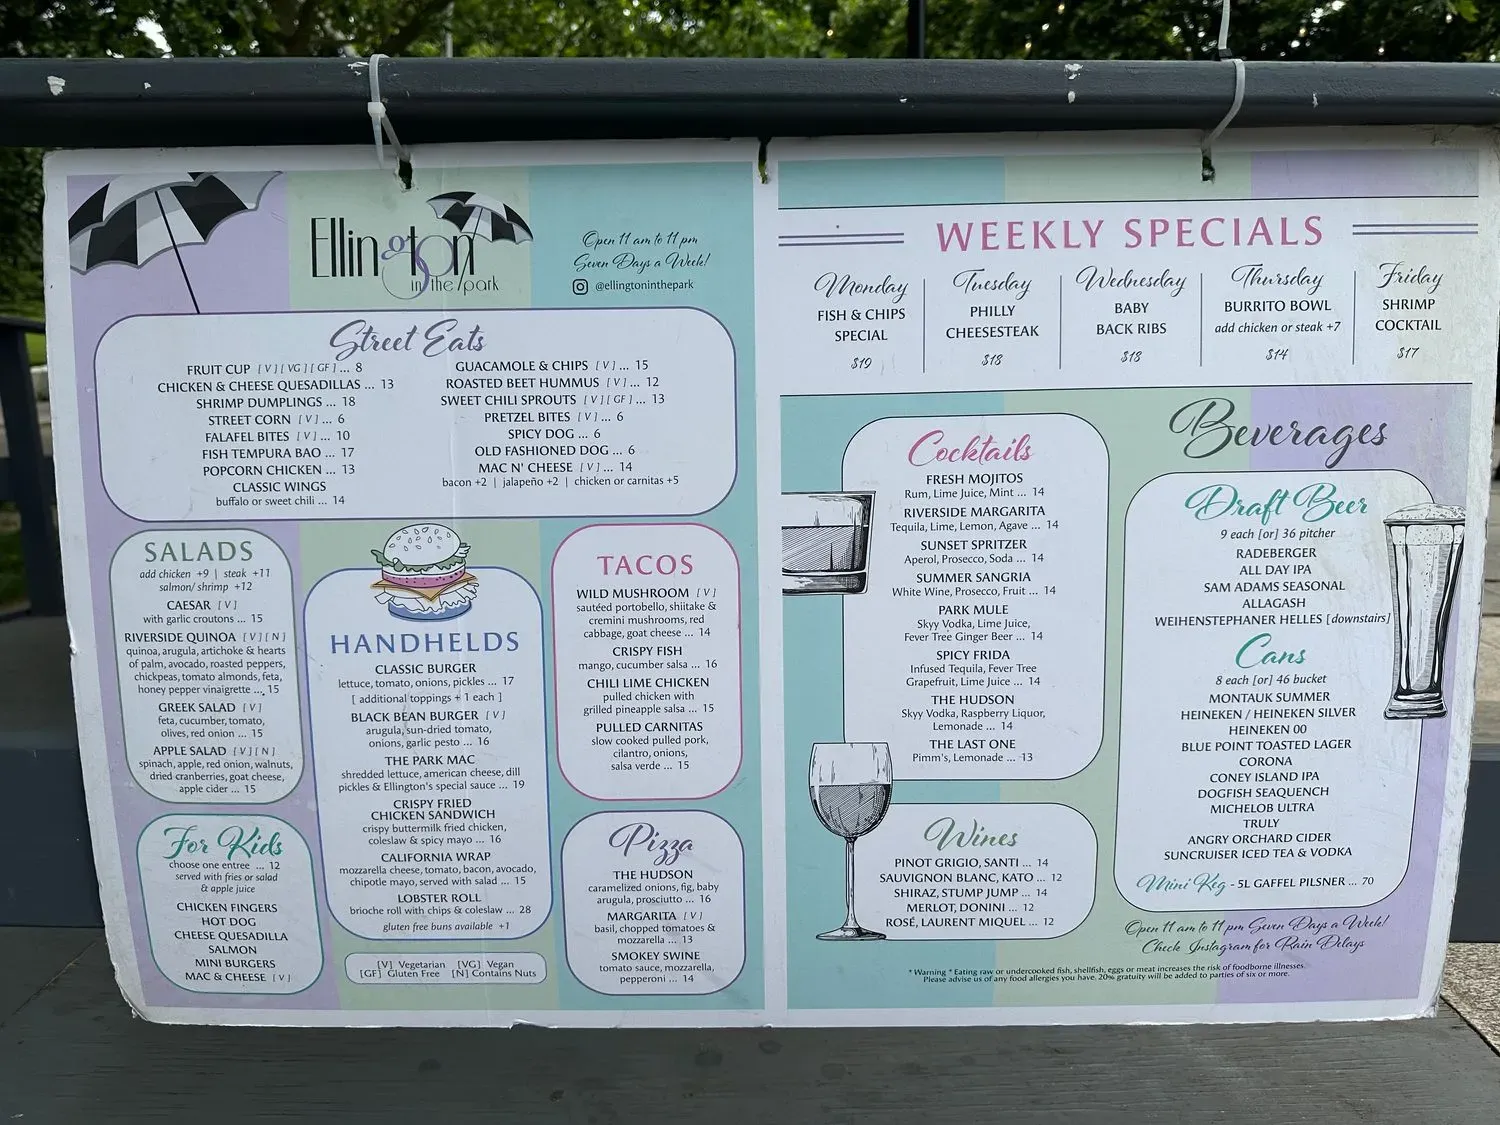 Ellington
in the park
Open 11 am to 11 pm
Seven Days a Week!
@ellingtoninthepark
Street Eats
FRUIT CUP [V] [VG] [GF] ... 8
CHICKEN & CHEESE QUESADILLAS ... 13
SHRIMP DUMPLINGS ... 18
STREET CORN [V] ... 6
FALAFEL BITES [V] ... 10
FISH TEMPURA BAO ... 17
POPCORN CHICKEN ... 13
CLASSIC WINGS
buffalo or sweet chili ... 14
GUACAMOLE & CHIPS [V] ... 15
ROASTED BEET HUMMUS [V] ... 12
SWEET CHILI SPROUTS [V] [GF] ... 13
PRETZEL BITES [V] ... 6
SPICY DOG ... 6
OLD FASHIONED DOG ... 6
MAC N' CHEESE [V] ... 14
bacon +2 | jalapeño +2 | chicken or carnitas +5
SALADS
add chicken +9 | steak +11
salmon/ shrimp +12
CAESAR [V]
with garlic croutons ... 15
RIVERSIDE QUINOA [V] [N]
quinoa, arugula, artichoke & hearts
of palm, avocado, roasted peppers,
chickpeas, tomato almonds, feta,
honey pepper vinaigrette ... 15
GREEK SALAD [V]
feta, cucumber, tomato,
olives, red onion ... 15
APPLE SALAD [V] [N]
spinach, apple, red onion, walnuts,
dried cranberries, goat cheese,
apple cider ... 15
For Kids
choose one entree ... 12
served with fries or salad
& apple juice
CHICKEN FINGERS
HOT DOG
CHEESE QUESADILLA
SALMON
MINI BURGERS
MAC & CHEESE [V]
HANDHELDS
CLASSIC BURGER
lettuce, tomato, onions, pickles ... 17
[ additional toppings + 1 each ]
BLACK BEAN BURGER [V]
arugula, sun-dried tomato,
onions, garlic pesto ... 16
THE PARK MAC
shredded lettuce, american cheese, dill
pickles & Ellington's special sauce ... 19
CRISPY FRIED
CHICKEN SANDWICH
crispy buttermilk fried chicken,
coleslaw & spicy mayo ... 16
CALIFORNIA WRAP
mozzarella cheese, tomato, bacon, avocado,
chipotle mayo, served with salad ... 15
LOBSTER ROLL
brioche roll with chips & coleslaw ... 28
gluten free buns available +1
[V] Vegetarian [VG] Vegan
[GF] Gluten Free [N] Contains Nuts
TACOS
WILD MUSHROOM [V]
sautéed portobello, shiitake &
cremini mushrooms, red
cabbage, goat cheese ... 14
CRISPY FISH
mango, cucumber salsa ... 16
CHILI LIME CHICKEN
pulled chicken with
grilled pineapple salsa ... 15
PULLED CARNITAS
slow cooked pulled pork,
cilantro, onions,
salsa verde ... 15
Pizza
THE HUDSON
caramelized onions, fig, baby
arugula, prosciutto ... 16
MARGARITA [V]
basil, chopped tomatoes &
mozzarella ... 13
SMOKEY SWINE
tomato sauce, mozzarella,
pepperoni ... 14
WEEKLY SPECIALS
Monday
FISH & CHIPS
SPECIAL
$19
Tuesday
PHILLY
CHEESESTEAK
$18
Wednesday
BABY
BACK RIBS
$18
Thursday
BURRITO BOWL
add chicken or steak +7
$14
Friday
SHRIMP
COCKTAIL
$17
Beverages
Cocktails
FRESH MOJITOS
Rum, Lime Juice, Mint ... 14
RIVERSIDE MARGARITA
Tequila, Lime, Lemon, Agave ... 14
SUNSET SPRITZER
Aperol, Prosecco, Soda ... 14
SUMMER SANGRIA
White Wine, Prosecco, Fruit ... 14
PARK MULE
Skyy Vodka, Lime Juice,
Fever Tree Ginger Beer ... 14
SPICY FRIDA
Infused Tequila, Fever Tree
Grapefruit, Lime Juice ... 14
THE HUDSON
Skyy Vodka, Raspberry Liquor,
Lemonade ... 14
THE LAST ONE
Pimm's, Lemonade ... 13
Wines
PINOT GRIGIO, SANTI ... 14
SAUVIGNON BLANC, KATO ... 12
SHIRAZ, STUMP JUMP ... 14
MERLOT, DONINI ... 12
ROSÉ, LAURENT MIQUEL ... 12
Draft Beer
9 each [or] 36 pitcher
RADEBERGER
ALL DAY IPA
SAM ADAMS SEASONAL
ALLAGASH
WEIHENSTEPHANER HELLES [downstairs]
Cans
8 each [or] 46 bucket
MONTAUK SUMMER
HEINEKEN / HEINEKEN SILVER
HEINEKEN 00
BLUE POINT TOASTED LAGER
CORONA
CONEY ISLAND IPA
DOGFISH SEAQUENCH
MICHELOB ULTRA
TRULY
ANGRY ORCHARD CIDER
SUNCRUISER ICED TEA & VODKA
Mini Keg - 5L GAFFEL PILSNER ... 70
Open 11 am to 11 pm Seven Days a Week!
Check Instagram for Rain Delays
* Warning * Eating raw or undercooked fish, shellfish, eggs or meat increases the risk of foodborne illnesses.
Please advise us of any food allergies you have. 20% gratuity will be added to parties of six or more.